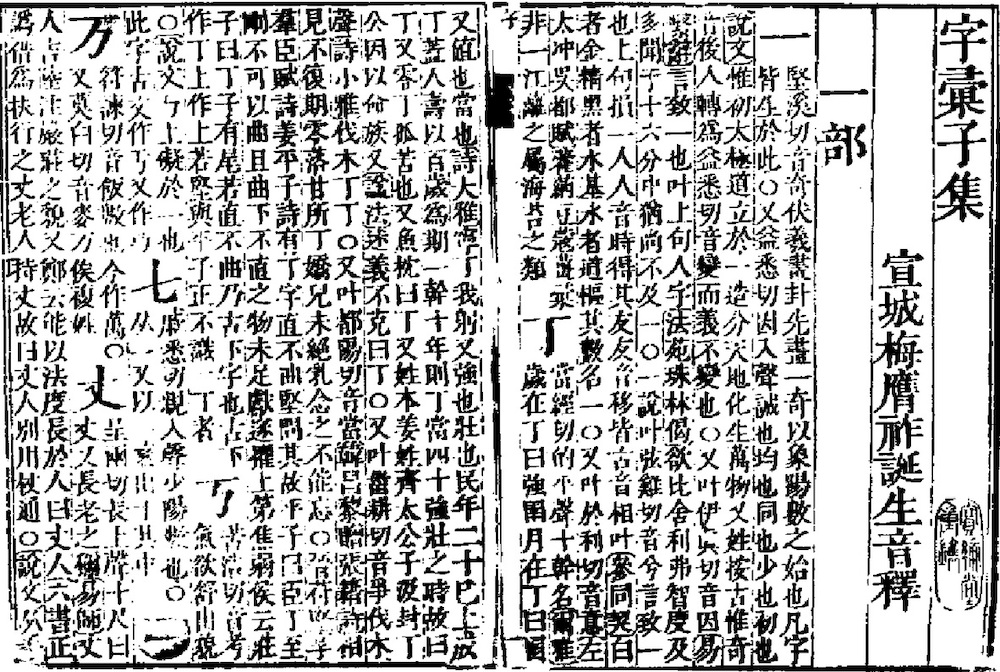 字彙子集
宣城梅膺祚誕生音釋
一部
一 堅溪切音奇伏羲畫卦先畫一奇以象陽數之始也凡字
皆生於此○又益悉切因入聲誠也均也同也少也初也
說文惟初太極道立於一造分天地化生萬物又姓按古惟奇
音後人轉為益悉切音變而義不變也○又叶伊眞切音因易
繫辭言致一也叶上句人字法苑珠林偈欲比舍利弗智慶及
多聞于十六分中猶尚不及一○一說叶弦雞切音兮言致一
也上句損一人人音時得其友友音移皆古音相叶參同契白
者金精黑者水基水者道樞其數名一○又叶於利切音意左
太冲吳都賦藿蒳豆蔻薑彙
非一江蘺之屬海苔之類
丁 當經切的平聲十幹名爾雅
歲在丁曰強圉月在丁曰圉
又值也當也詩大雅寧丁我躬又強也壯也民年二十已上成
丁蓋人壽以百歲為期一幹十年則丁當四十強壯之時故曰
丁又零丁孤苦也又魚枕曰丁又姓本姜姓齊太公子汲封丁
公因以命族又諡法述義不克曰丁○又叶甾耕切音爭伐木
聲詩小雅伐木丁丁○又叶都陽切音當韓昌黎贈張籍詩相
見不復期零落甘所丁嬌兒未絕乳念之不能忘○晉苻堅
羣臣賦詩姜平子詩有丁字直不曲堅問其故平子曰臣丁至
剛不可以曲且曲下不直之物未足獻遂擢上第焦弱侯云莊
子曰丁子有尾若直不曲乃古下字也古下
作丁上作丄若堅與平子正不識一丁者
丂 苦浩切音考
氣欲舒出貌
○說文丂上礙於一也
此字古文作丂又作
七 戚悉切親入聲少陽數也○
从一又以
万 符諫切音飯數也今作萬○
又莫白切音麥万俟複姓
丈 呈兩切長上聲十尺曰
丈又長老之稱易師丈
人吉王注嚴莊之貌又鄭云能以法度長於人曰丈人六書正
譌借為扶行之丈老人持丈故曰丈人別用杖通○說文